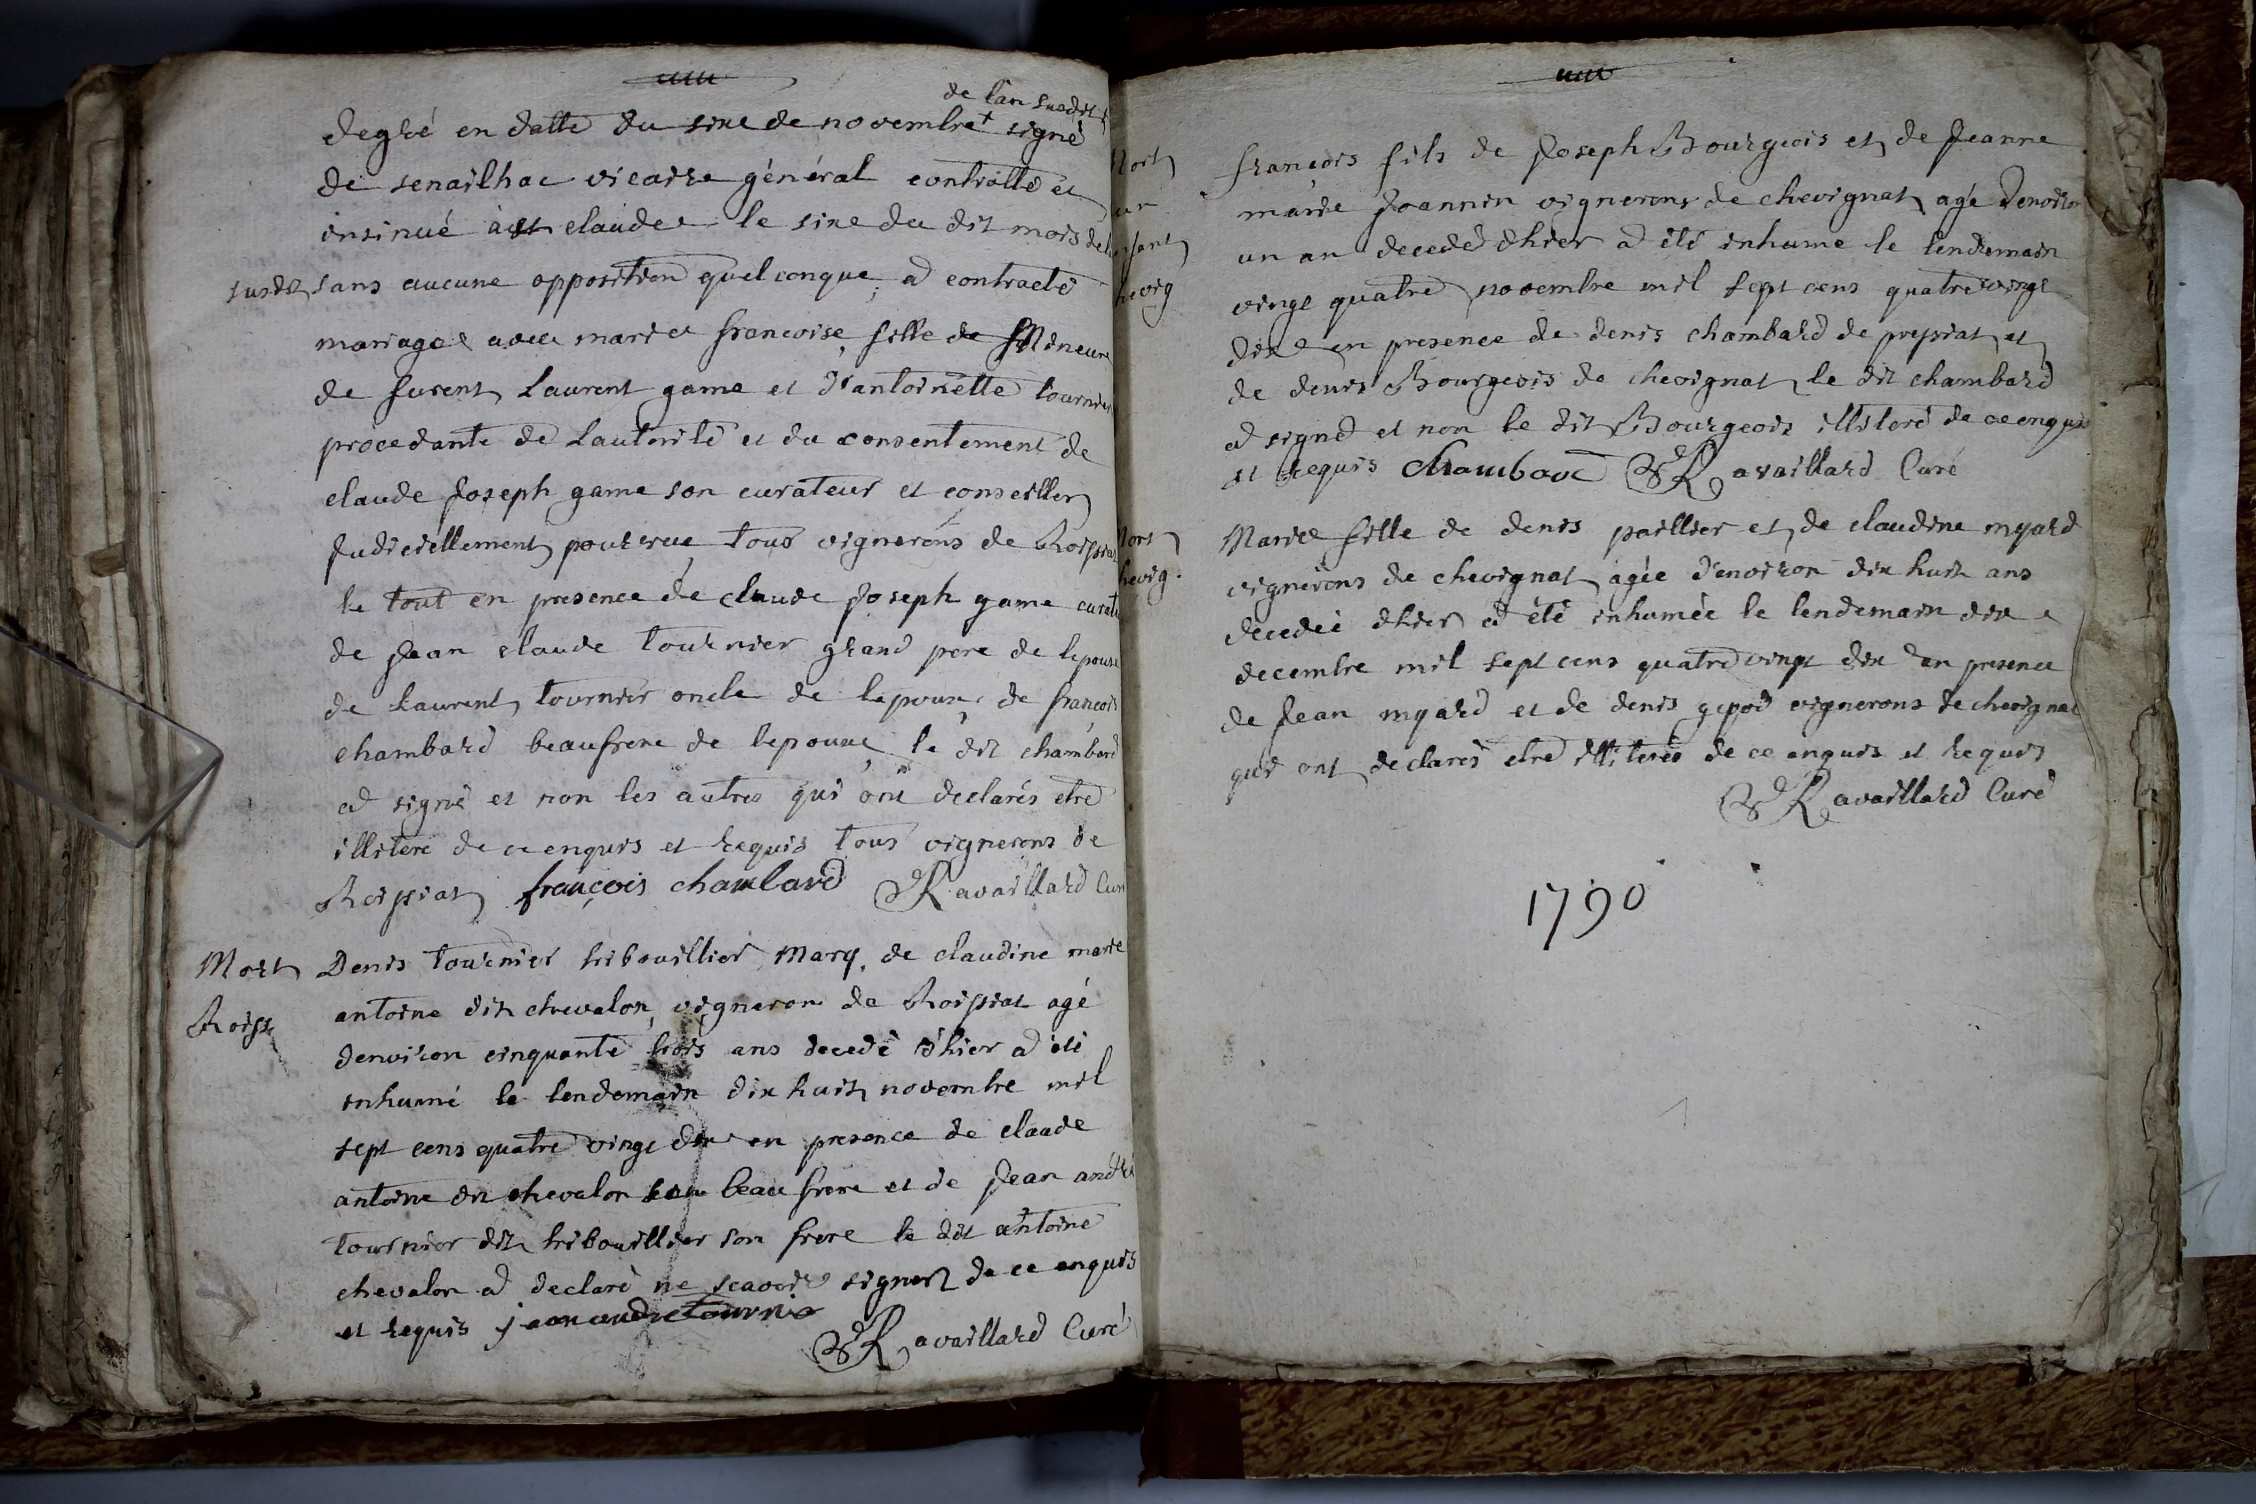 de lan susdit
degré en datte du sixe de novembre + signé
de senailhac vicaire général controllé et
insinué à st claude le sixe du dit mois de l
susdit sans aucune opposition quelconque, a contracté
mariage avec marie francoise fille de Mineure
de furent Laurent game et d'antoinette tournier
procedante de Lautorité et du consentement de
claude Joseph game son curateur et conseiller
Judiciellement pourvue tous vignerons de Roissiat
le tout en presence de claude Joseph game curate
de Jean claude tournier grand pere de lepouse
de Laurent tournier oncle de lepouse, de françois
chambard beaufrere de lepouse, le dit chambard
a signé et non les autres qui ont declarés etre
illiteré de ce enquis et requis tous vignerons de
Roissiat françois chambard Ravaillard Curé
Mort Denis tournier tribouillier Mary de claudine marie
Roiss antoine dit chevalon, vigneron de Roissiat agé
denviron cinquante trois ans decedé d'hier a été
inhumé le lendemain dix huit novembre mil
sept cens quatre vingt dix en presence de claude
antoine dit chevalon son beau frere et de Jean andré
tournier dit tribouillier son frere le dit antoine
chevalon a declaré ne scavoir signer de ce enquis
et requis jean andre tournie
Ravaillard Curé
Mort francois fils de Joseph Bourgeois et de Jeanne
un marie Joannin vignerons de chevignat agé denviron
enfant un an decedé dhier a été inhumé le lendemain
chevig vingt quatre novembre mil sept cens quatre vingt
dix en presence de denis chambard de pressiat et
de denis Bourgeois de chevignat le dit chambard
a signé et non le dit Bourgeois illiteré de ce enquis
et requis Chambard Ravaillard Curé
Mort Marie fille de denis paillier et de claudine myard
chevig. vignerons de chevignat agée d'environ dix huit ans
decedée dhier a été inhumée le lendemain dix
decembre mil sept cens quatre vingt dix en presence
de Jean myard et de denis gepod vignerons de chevignat
qui ont declarés etre illiterés de ce enquis et requis
Ravaillard Curé
1790